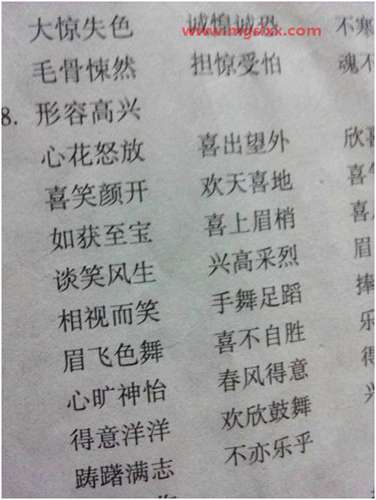 大惊失色 诚惶诚恐 不寒
www.mgslxx.com
毛骨悚然 担惊受怕 魂不
8. 形容高兴
心花怒放 喜出望外 欣喜
喜笑颜开 欢天喜地 喜气
如获至宝 喜上眉梢 喜
谈笑风生 兴高采烈 眉
相视而笑 手舞足蹈 捧
眉飞色舞 喜不自胜 乐
心旷神怡 春风得意 得
得意洋洋 欢欣鼓舞 兴
踌躇满志 不亦乐乎